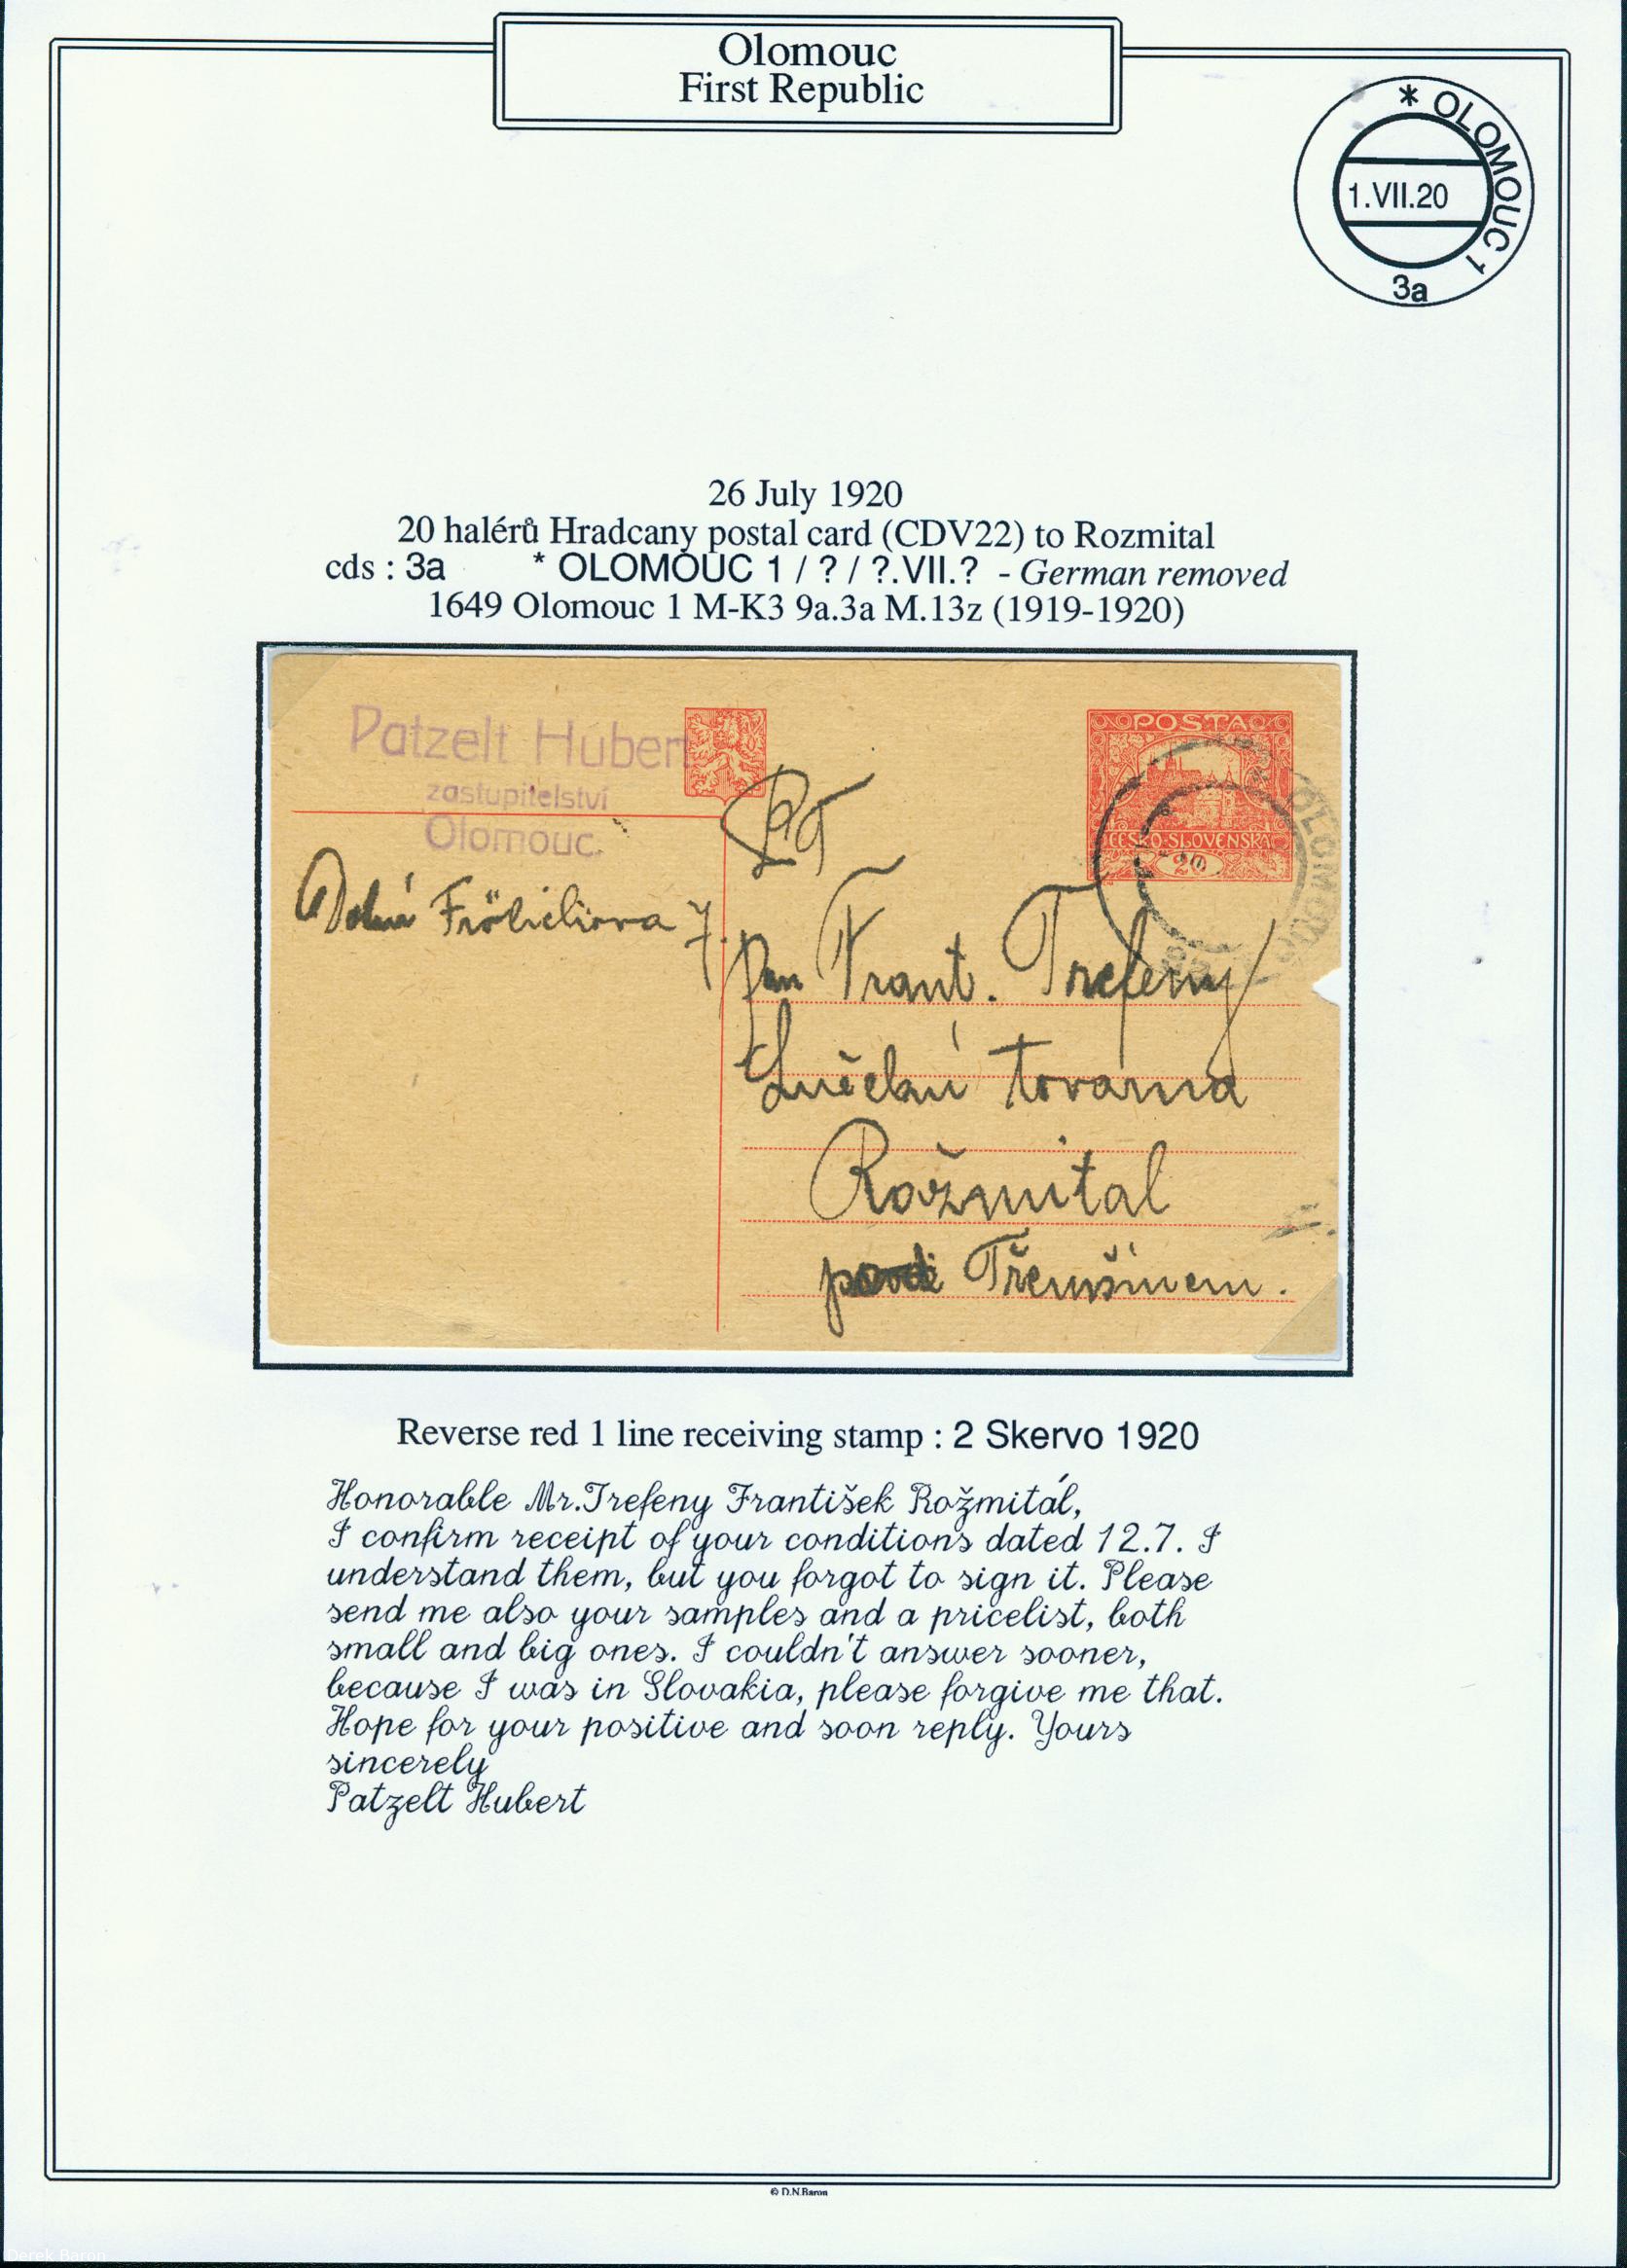 Olomouc
First Republic
* OLOMOUC 1
1.VII.20
3a
26 July 1920
20 halérů Hradcany postal card (CDV22) to Rozmital
cds : 3a * OLOMOUC 1 / ? / ?.VII.? - German removed
1649 Olomouc 1 M-K3 9a.3a M.13z (1919-1920)
Patzelt Hubert
zastupitelství
Olomouc.
POSTA
ČESKO-SLOVENSKÁ
20
OLOMOUC
Dolní Fröhlichova 7.
Pan Frant. Trefeny
továrna
Rožmitál
pod Třemšínem.
Reverse red 1 line receiving stamp : 2 Skervo 1920
Honorable Mr.Trefeny František Rožmitál,
I confirm receipt of your conditions dated 12.7. I
understand them, but you forgot to sign it. Please
send me also your samples and a pricelist, both
small and big ones. I couldn't answer sooner,
because I was in Slovakia, please forgive me that.
Hope for your positive and soon reply. Yours
sincerely
Patzelt Hubert
© D.N.Baron
Derek Baron